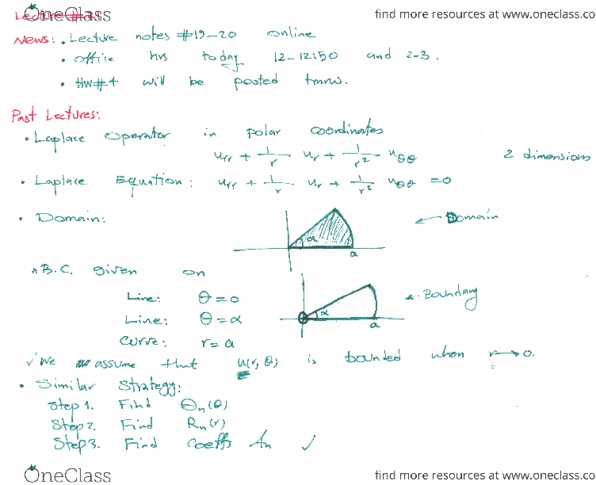 OneClass
find more resources at www.oneclass.com
News: • Lecture notes #19-20 online
• office hrs today 12-12:50 and 2-3.
• HW#4 will be posted tmrw.
Past Lectures:
• Laplace Operator in polar coordinates
u_rr + 1/r u_r + 1/r² u_θθ 2 dimensions
• Laplace Equation: u_rr + 1/r u_r + 1/r² u_θθ = 0
• Domain: α a ← Domain
* B.C. given on
Line: θ=0
Line: θ=α α a ← Boundary
Curve: r=a
✓ We assume that u(r,θ) is bounded when r→0.
• Similar Strategy:
Step 1. Find Θn(θ)
Step 2. Find Rn(r)
Step 3. Find Coeffs An ✓
OneClass
find more resources at www.oneclass.com